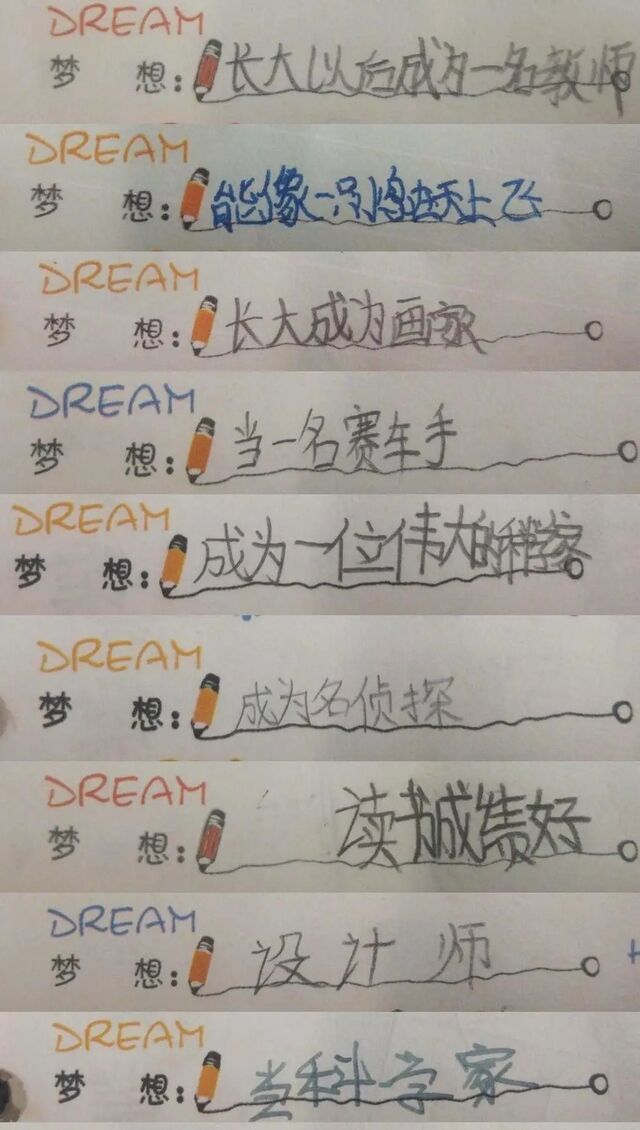 DREAM
梦 想：长大以后成为一名教师
DREAM
梦 想：能像一只鸟在天上飞
DREAM
梦 想：长大成为画家
DREAM
梦 想：当一名赛车手
DREAM
梦 想：成为一位伟大的科学家
DREAM
梦 想：成为名侦探
DREAM
梦 想：读书成绩好
DREAM
梦 想：设计师
DREAM
梦 想：当科学家